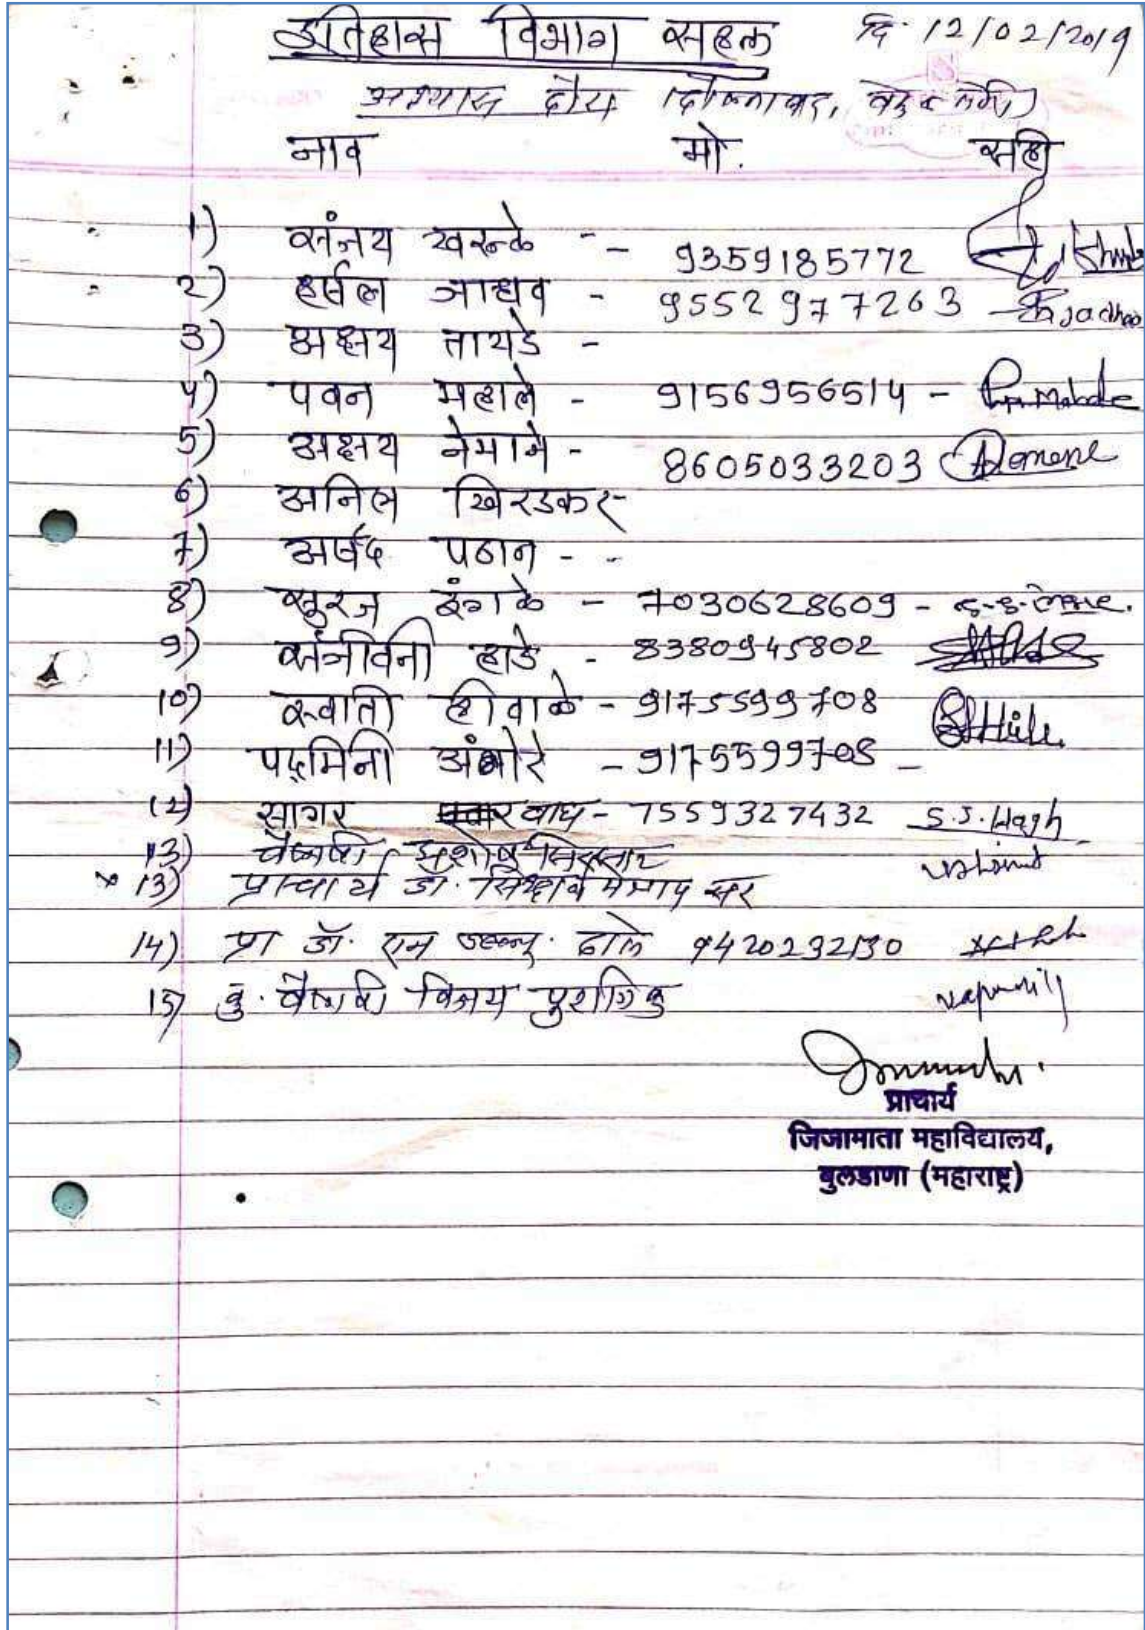 इतिहास विभाग सहल दि. 12/02/2019
अभ्यास दौरा (दौलताबाद, वेरुळ लेणी)
नाव मो. सही
1) संजय खरुळे - - 9359185772
2) हर्षल जाधव - 9552977263 - Jadhao
3) अक्षय तायडे -
4) पवन महाले - 9156956514 - P.P. Mahale
5) अक्षय नेमाने - 8605033203 Nemane
6) अनिल खिरडकर -
7) अर्षद पठान - -
8) सुरज इंगळे - 7030628609 -
9) संजीवनी हाडे - 8380945802
10) स्वाती हीवाळे - 9175599708
11) पद्मिनी अंभोरे - 9175599708 -
12) सागर वाघ - 7559327432 S.S. Wagh
13) वैष्णवी
13) प्राचार्य डॉ. सर
14) प्रा डॉ. एन डब्ल्यू. ढाले 9420232130
15) कु. वैष्णवी विजय पुराणिक
प्राचार्य
जिजामाता महाविद्यालय,
बुलडाणा (महाराष्ट्र)